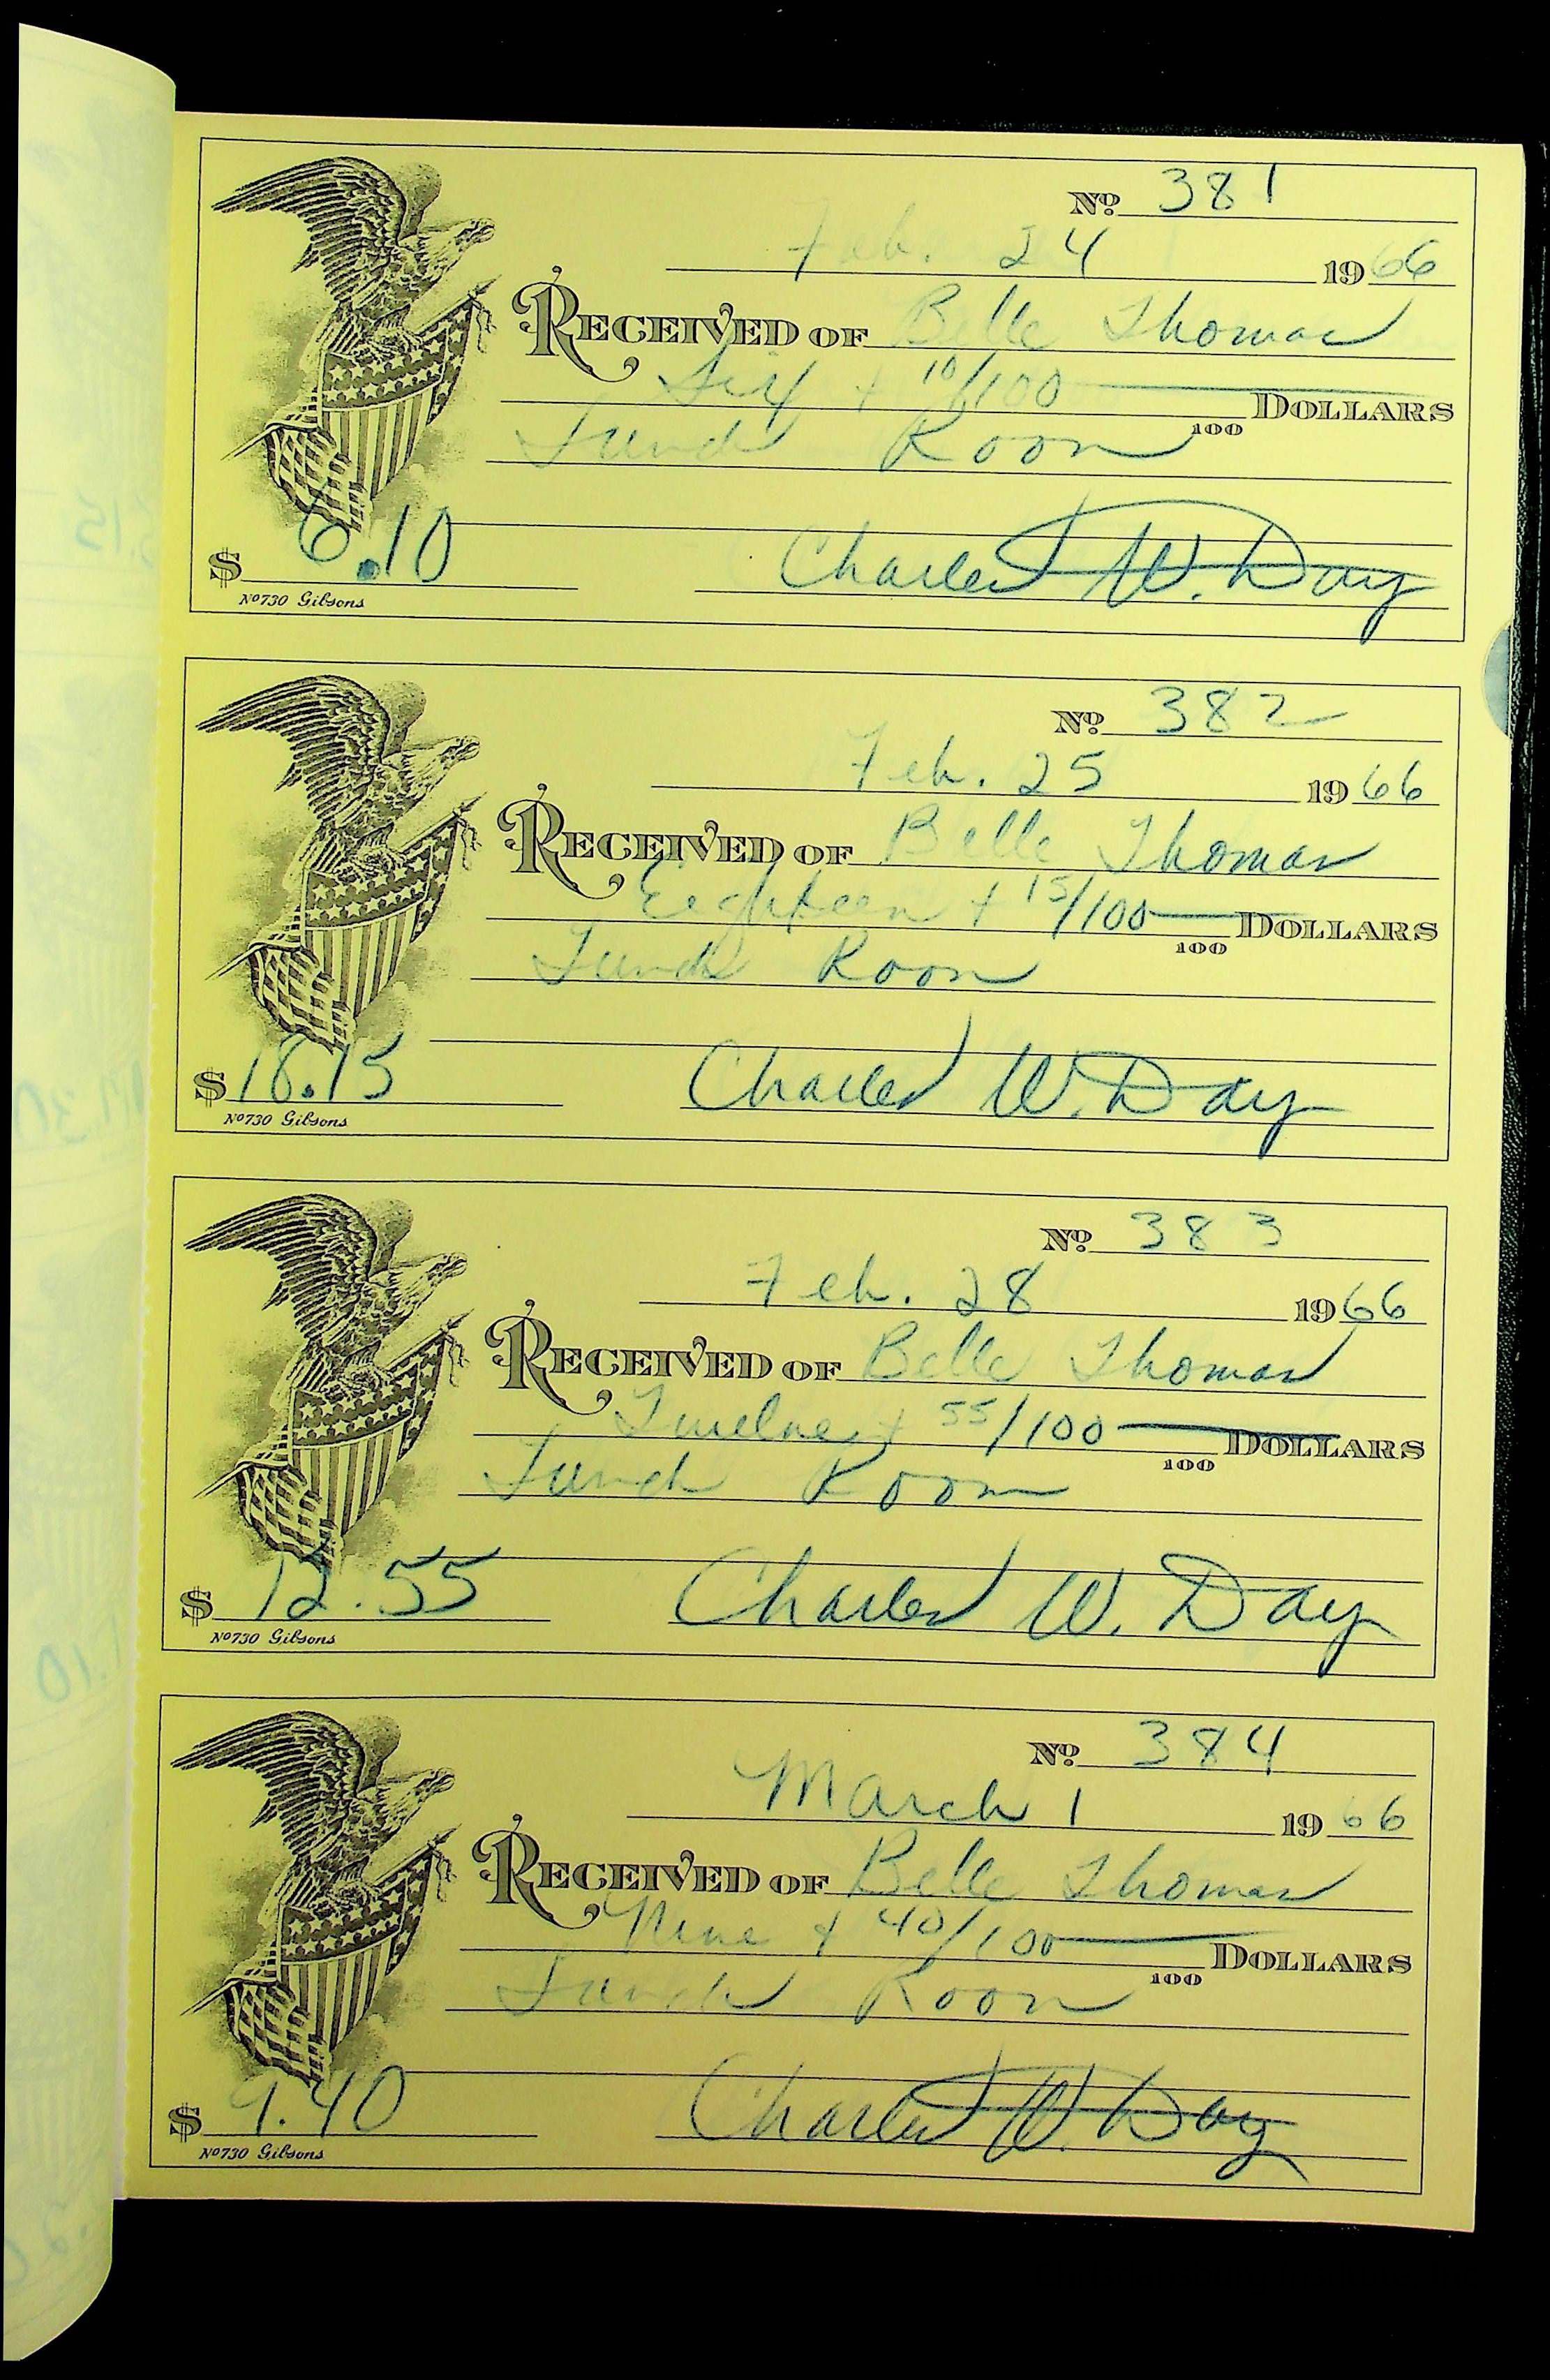 No 381
Feb. 24 1966
RECEIVED OF Belle Thomas
Six + 10/100 DOLLARS
100
Lunch Room
$ 6.10 Charles W. Day
No 730 Gibsons
No 382
Feb. 25 1966
RECEIVED OF Belle Thomas
Eighteen + 15/100 DOLLARS
100
Lunch Room
$ 18.15 Charles W. Day
No 730 Gibsons
No 383
Feb. 28 1966
RECEIVED OF Belle Thomas
Twelve + 55/100 DOLLARS
100
Lunch Room
$ 12.55 Charles W. Day
No 730 Gibsons
No 384
March 1 1966
RECEIVED OF Belle Thomas
Nine + 40/100 DOLLARS
100
Lunch Room
$ 9.40 Charles W. Day
No 730 Gibsons